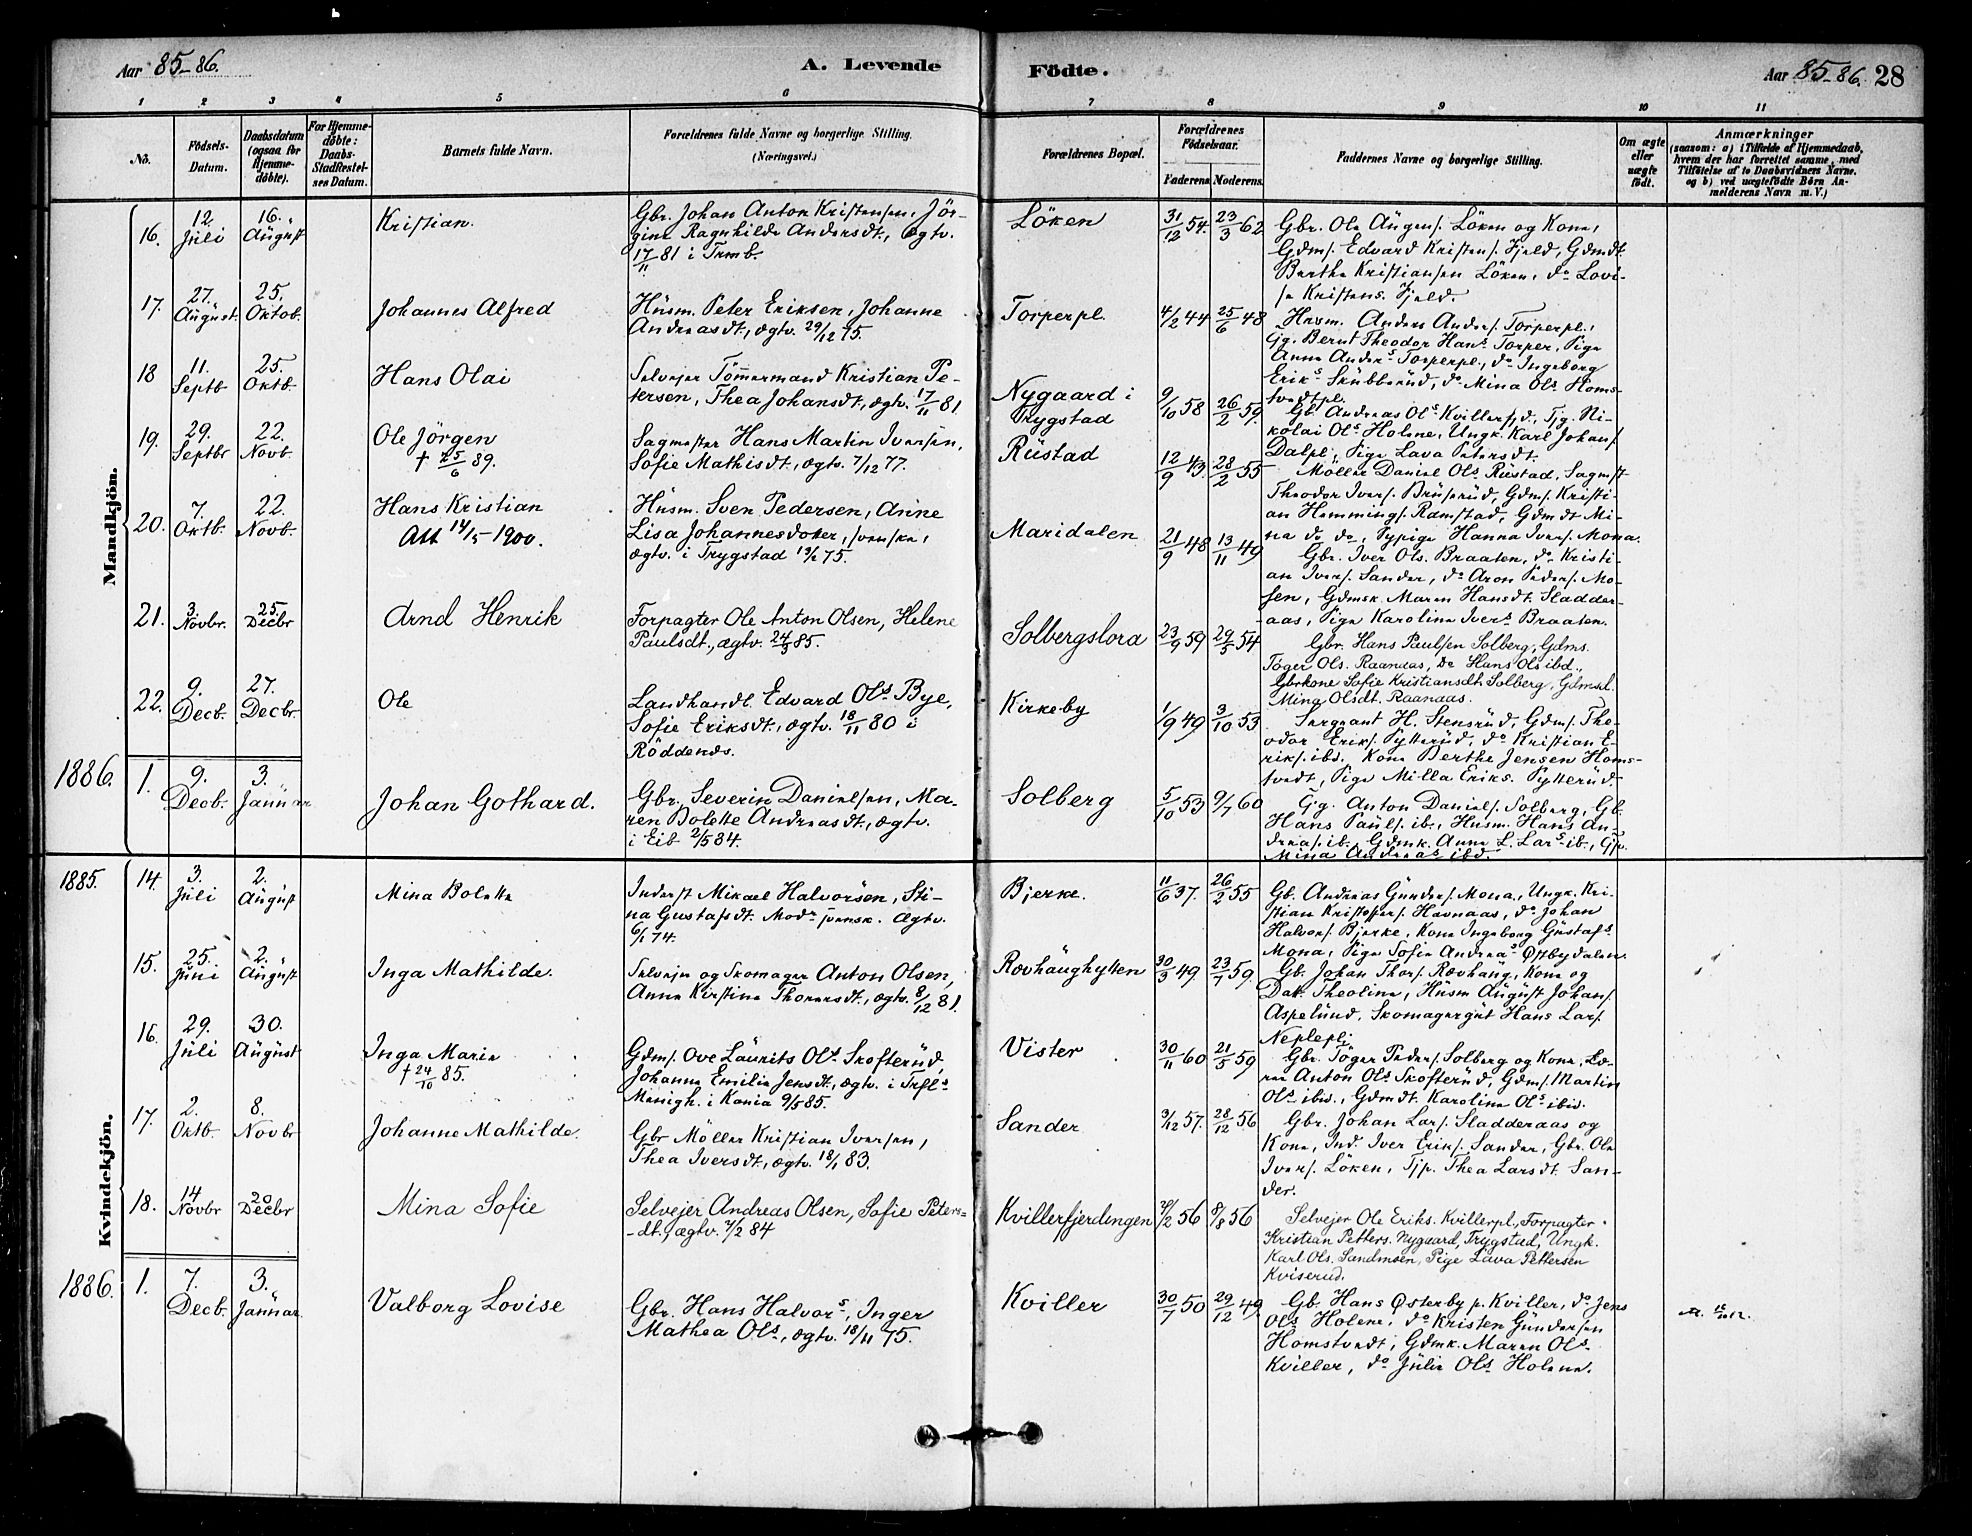 Aar 85-86.
A. Levende
Födte.
Aar 85-86. 28
1 2 3 4 5 6 7 8 9 10 11
No.
Födsels-Datum.
Daabsdatum (ogsaa for Hjemme-döbte).
For Hjemme-döbte: Daabs-Stadfæstel-ses Datum.
Barnets fulde Navn.
Forældrenes fulde Navne og borgerlige Stilling. (Næringsvei.)
Forældrenes Bopæl.
Forældrenes Födselsaar.
Faderens Moderens
Faddernes Navne og borgerlige Stilling.
Om ægte eller uægte født.
Anmærkninger
(saasom: a) i Tilfælde af Hjemmedaab,
hvem der har forrettet samme, med
Tilföielse af to Daabsvidners Navne.
og b) ved uægtefödte Börn An-
melderens Navn m. V.)
Mandkjön.
16. 12. Juli 16. August
Kristian.
Gbr. Johan Anton Kristensen, Jör-
gine Ragnhilde Andersdt., ægtv.
17/11 81 i Trmb.
Löken
31/12 54. 23/3 62
Gbr. Ole Augens. Löken og Kone,
Gdms. Edvard Kristens. Fjeld, Gdmdt.
Berthe Kristiansen Löken, do Lovi-
se Kristens. Fjeld.
17. 27. August. 25. Oktob.
Johannes Alfred
Husm. Peter Eriksen, Johanne
Andreasdt., ægtv. 29/12 75.
Torperpl.
4/2 44 25/6 48
Husm. Anders Anders. Torperpl.,
Gg. Bernt Theodor Hans. Torper, Pige
Anne Anders. Torperpl., do Ingeborg
Eriks. Skubberud, do Mina Ols. Homs-
tvedtpl.
18 11. Septb 25. Oktb.
Hans Olai
Selveier Tömmermand Kristian Pe-
tersen, Thea Johansdt., ægtv. 17/11 81.
Nygaard i
Trygstad
9/10 58 26/2 59.
Gb. Andreas Ols. Kvillerfjd., Tjg. Ni-
kolai Ols. Holene, Ungk. Karl Johans.
Dalpl., Pige Lava Petersdt.
19. 29. Septbr 22. Novb.
Ole Jörgen
† 25/6 89.
Sagmester Hans Martin Iversen,
Sofie Mathisdt., ægtv. 7/12 77.
Rustad
12/9 43. 28/2 55
Möller Daniel Ols. Rustad, Sagmst
Theodor Ivers. Bruserud, Gdms. Kristi-
an Hemmings. Ramstad, Gdmdt Mi-
na do do, Sypige Hanna Ivers. Mona.
20. 7. Oktb. 22. Novb.
Hans Kristian
Att 14/5-1900.
Husm. Sven Pedersen, Anne
Lisa Johannesdoter, svenske,
ægtv. i Trygstad 19/2 75.
Maridalen
21/9 48 13/11 49
Gbr. Iver Ols. Braaten, do Kristi-
an Ivers. Sander, do Aron Peders. Mo-
sen, Gdmsk. Maren Hansdt. Sladder-
aas, Pige Karoline Ivers. Braaten.
21. 3. Novbr. 25. Decbr
Arnd Henrik
Forpagter Ole Anton Olsen, Helene
Paulsdt., ægtv. 24/5 85.
Solbergslora
23/9 59 29/5 54
Gbr. Hans Paulsen Solberg, Gdms.
Töger Ols. Raanaas, Do Hans Ols ibd.,
Gbrkone Sofie Kristiansdt. Solberg, Gdmsd.
Mina Olsdt. Raanaas.
22. 9. Decb. 27. Decbr.
Ole
Landhandl. Edvard Ols. Bye,
Sofie Eriksdt., ægtv. 18/11 80 i
Röddenes.
Kirkeby
1/9 49 3/10 53
Sergeant H. Stensrud, Gdms. The-
odor Eriks. Pytterud, do Kristian E-
riks. ibd. Kone Berthe Jensen Homs-
tvedt, Pige Milla Eriks. Pytterud.
1886. 1. 9. Decb. 3. Januar
Johan Gothard.
Gbr. Severin Danielsen, Ma-
ren Bolette Andreasdt., ægtv.
i Eib 2/5 84.
Solberg
5/10 53 9/7 60
Gg. Anton Daniels. Solberg, Gb.
Hans Pauls. ib., Husm. Hans An-
dreas. ib., Gdmk. Anne L. Lars. ib., Gjp.
Mina Andreas ibd.
Kvindekjön.
1885. 14. 3. Juli 2. August
Mina Bolette
Inderst Mikael Halvorsen, Sti-
na Gustafsdt. Moder svensk. Ægtv.
6/1 74.
Bjerke.
11/6 37. 26/2 55
Gb. Andreas Gunders. Mona, Ungk. Kri-
stian Kristoffers. Havnaas, do Johan
Halvors. Bjerke, Kone Ingeborg Gustafs.
Mona, Pige Sofie Andreas. Østbydalen
15. 25. Juni 2. August
Inga Mathilde.
Selveier og Skomager Anton Olsen,
Anne Kirstine Thoresdt., ægtv. 8/12 81.
Rovhaughytten
30/3 49 23/7 59.
Gb. Johan Thors. Rovhaug, Kone og
Datt. Theoline, Husm August Johans.
Aspelund, Skomagergut Hans Lars.
Neplepl.
16. 29. Juli 30. August
Inga Marie
† 24/10 85.
Gdms. Ove Laurits Ols. Skofterud,
Johanne Emilie Jensdt., ægtv. i Trfl.
Menigh. i Kania 9/5 85.
Vister
30/11 60 21/5 59
Gbr. Töger Peders. Solberg og Kone, Læ-
rer Anton Ols. Skofterud, Gdms. Martin
Ols. ibid., Gdmdt. Karoline Ols. ibid.
17. 2. Oktb. 8. Novbr
Johanne Mathilde.
Gbr Möller Kristian Iversen,
Thea Iversdt., ægtv. 18/1 83.
Sander
3/12 57. 28/12 56
Gbr. Johan Lars. Sladderaas og
Kone, Ind. Iver Eriks. Sander, Gbr. Ole
Ivers. Löken, Tjp. Thea Larsdt. San-
der.
18. 14 Novbr 20 Decbr
Mina Sofie
Selvejer Andreas Olsen, Sofie Peters-
-dt., ægtv. 7/2 84
Kvillerfjerdingen
/2 56 8/8 56
Selvejer Ole Eriks. Kvillerpl., Forpagter
Kristian Petters. Nygaard, Trygstad, Ungk.
Karl Ols. Sandmoen, Pige Lava Pettersen
Kviserud.
1886. 1. 7. Decb. 3. Januar
Valborg Lovise
Gbr. Hans Halvors., Inger
Mathea Ols., ægtv. 18/11 75.
Kviller
30/7 50 29/12 49
Gb. Hans Østerby p. Kviller, do Jens
Ols. Holene, do Kristen Gundersen
Homstvedt, Gdmk. Maren Ols.
Kviller, do Julie Ols. Holene.